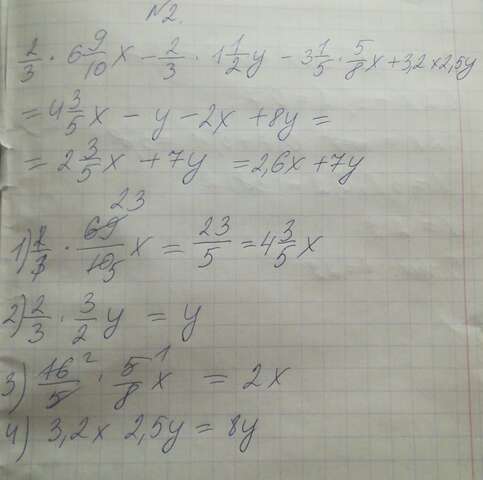 №2.
2/3 · 6 9/10 x - 2/3 · 1 1/2 y - 3 1/5 · 5/8 x + 3,2 × 2,5y
= 4 3/5 x - y - 2x + 8y =
= 2 3/5 x + 7y = 2,6x + 7y
23
1) 2/3 · 69/10 5 x = 23/5 = 4 3/5 x
2) 2/3 · 3/2 y = y
3) 16/5 2 · 5/8 1 x = 2x
4) 3,2 × 2,5y = 8y